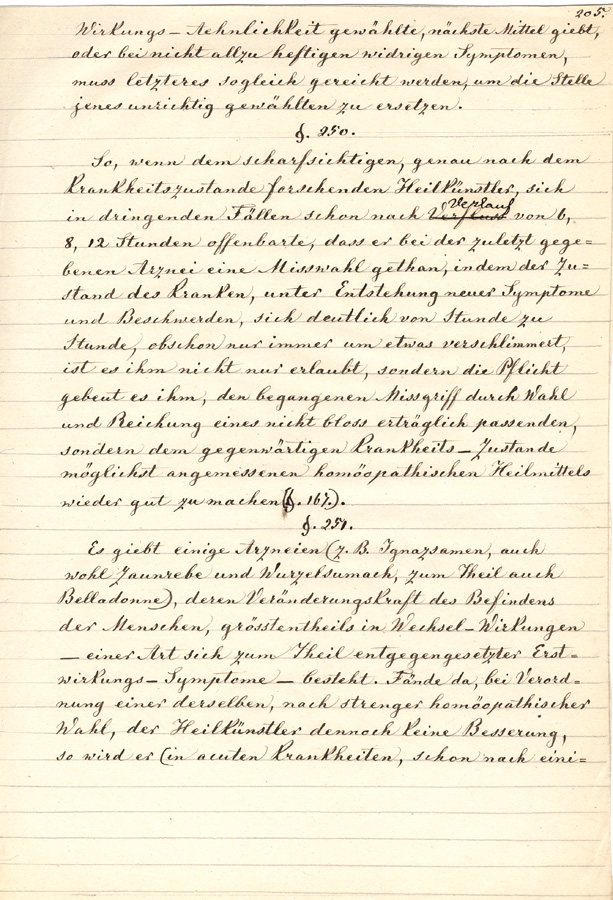 205.
Wirkungs-Aehnlichkeit gewählte, nächste Mittel giebt,
oder bei nicht allzu heftigen widrigen Symptomen,
muss letzteres sogleich gereicht werden, um die Stelle
jenes unrichtig gewählten zu ersetzen.
§. 250.
So, wenn dem scharfsichtigen, genau nach dem
Krankheitszustande forschenden Heilkünstler, sich
Verlauf
in dringenden Fällen schon nach Verfluss von 6,
8, 12 Stunden offenbarte, dass er bei der zuletzt gege=
benen Arznei eine Misswahl gethan, indem der Zu=
stand des Kranken, unter Entstehung neuer Symptome
und Beschwerden, sich deutlich von Stunde zu
Stunde, obschon nur immer um etwas verschlimmert,
ist es ihm nicht nur erlaubt, sondern die Pflicht
gebeut es ihm, den begangenen Missgriff durch Wahl
und Reichung eines nicht bloss erträglich passenden,
sondern dem gegenwärtigen Krankheits-Zustande
möglichst angemessenen homöopathischen Heilmittels
wieder gut zu machen (§. 167.).
§. 251.
Es giebt einige Arzneien (z. B. Ignazsamen, auch
wohl Zaunrebe und Wurzelsumach, zum Theil auch
Belladonne), deren Veränderungskraft des Befindens
der Menschen, grösstentheils in Wechsel-Wirkungen
— einer Art sich zum Theil entgegengesetzter Erst=
wirkungs-Symptome — besteht. Fände da, bei Verord=
nung einer derselben, nach strenger homöopathischer
Wahl, der Heilkünstler dennoch keine Besserung,
so wird er (in acuten Krankheiten, schon nach eini=